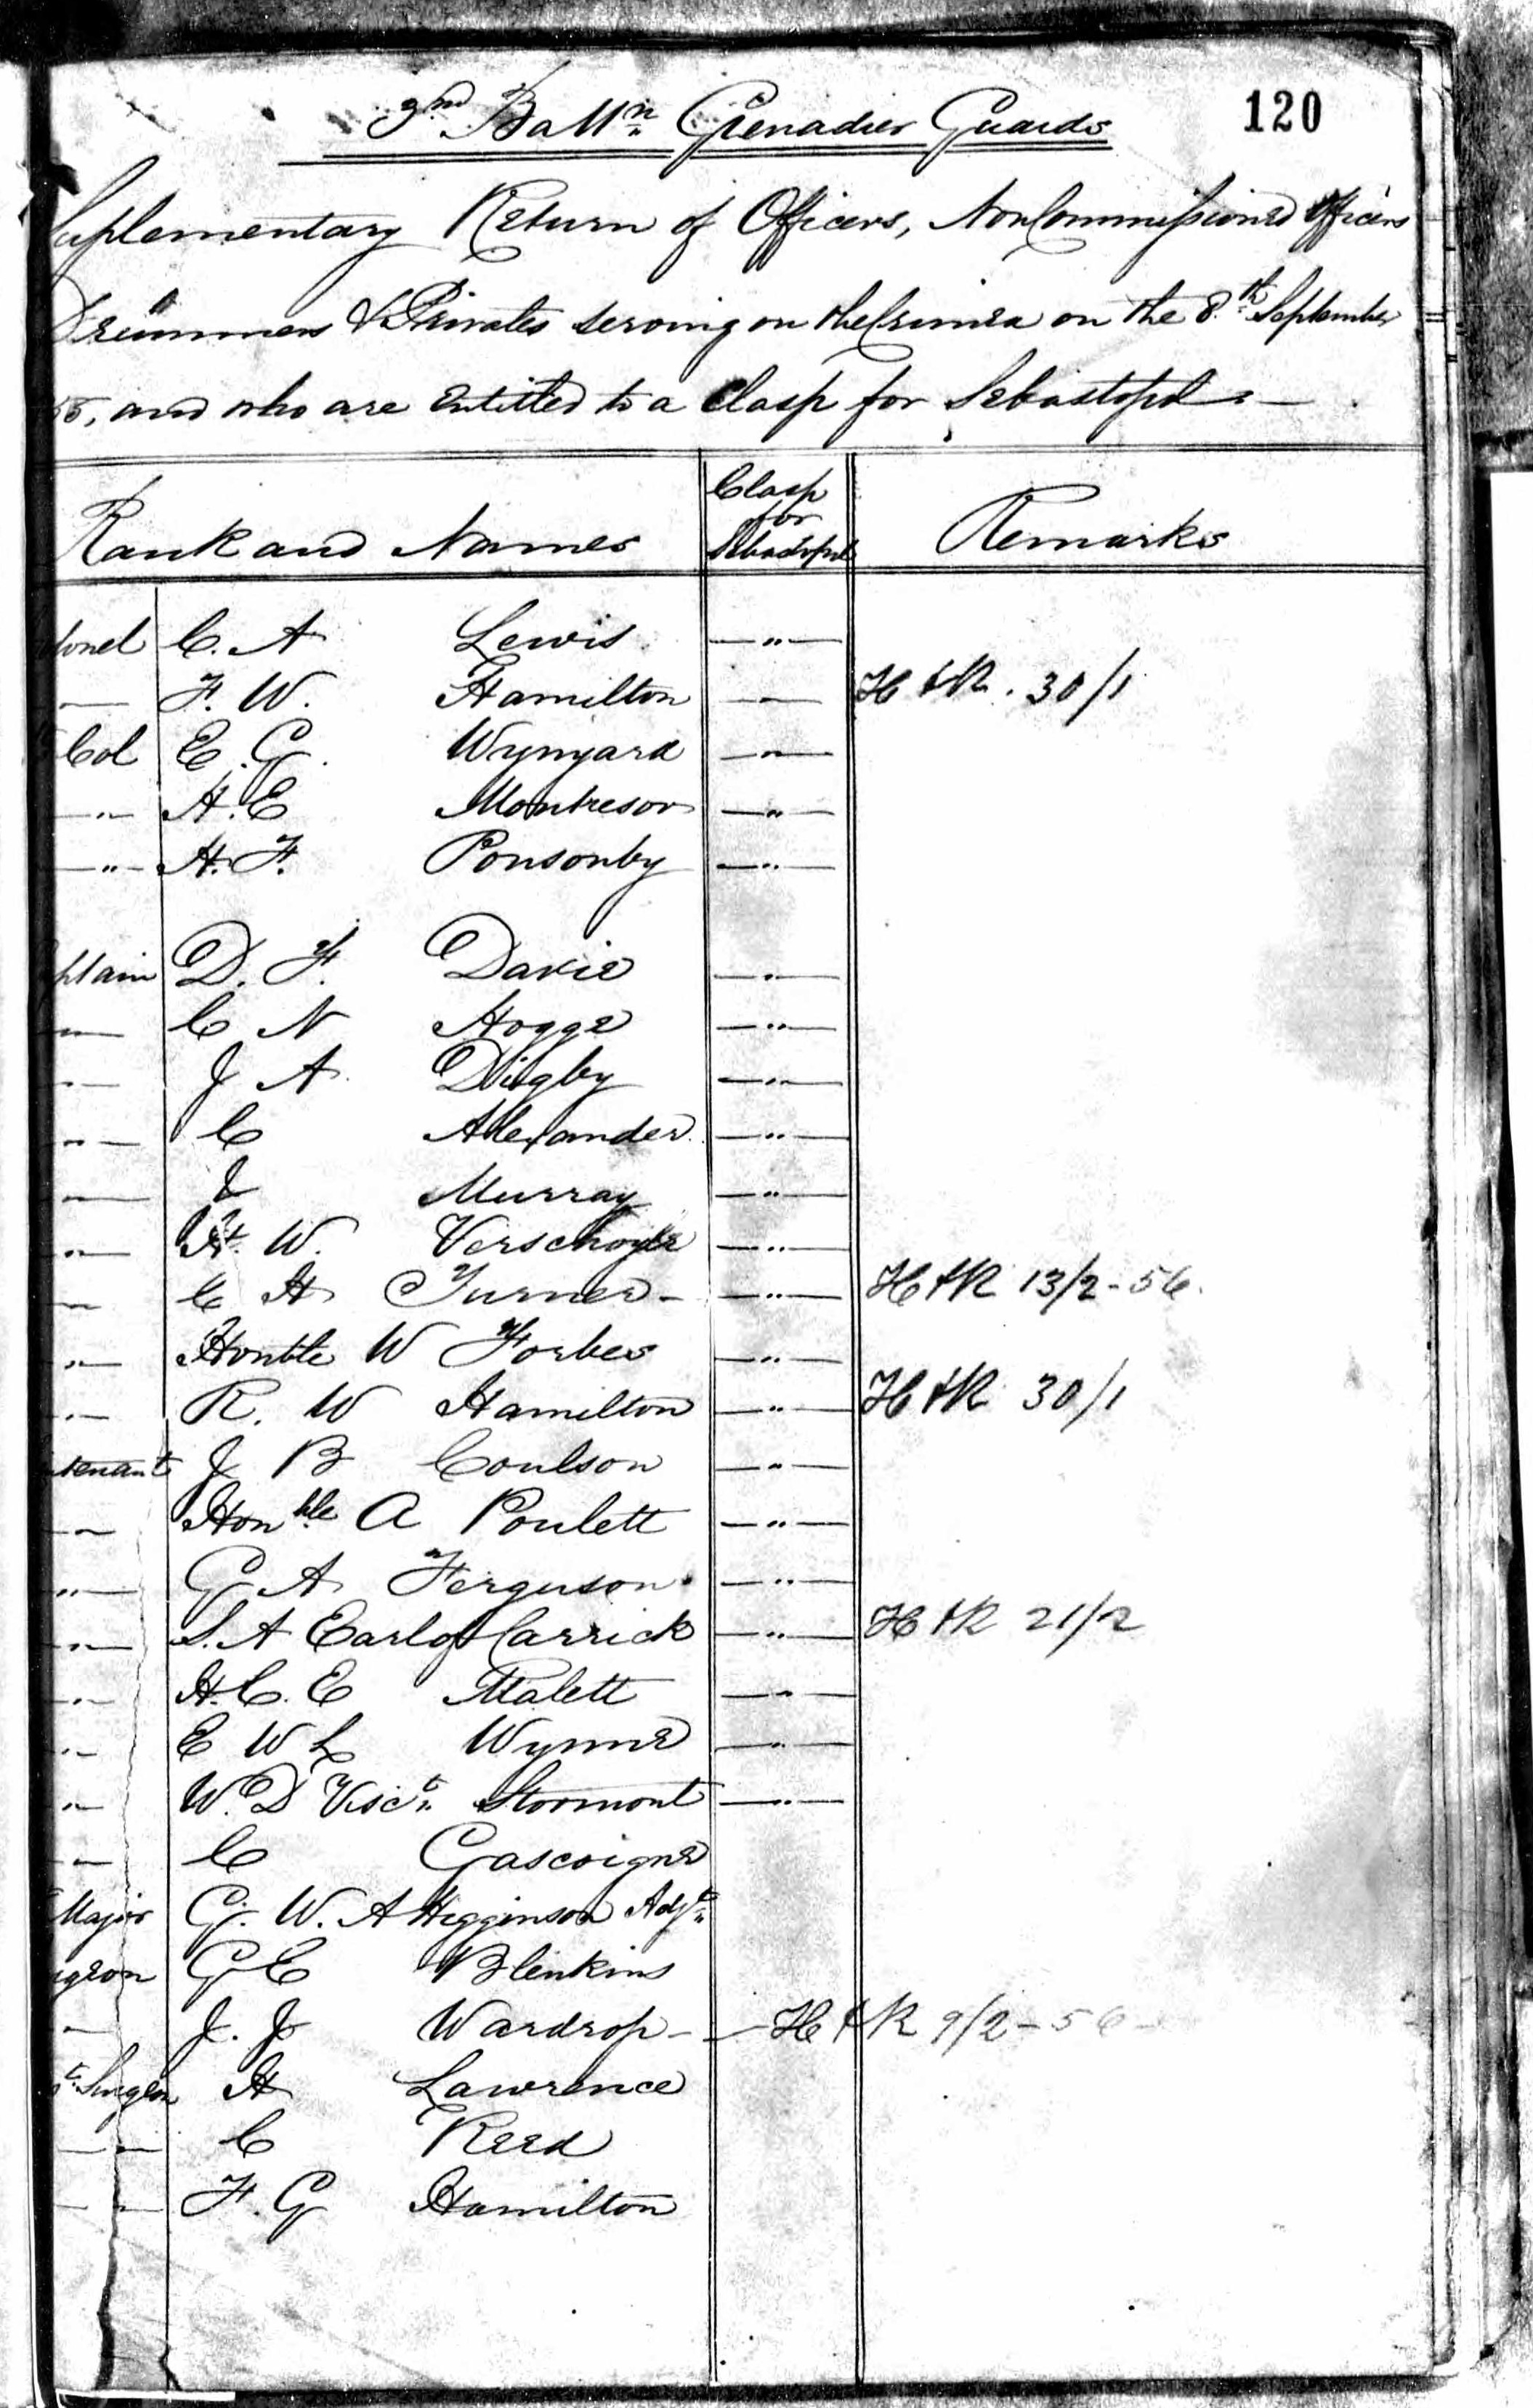 120
3rd Battn Grenadier Guards
Suplementary Return of Officers, NonCommissioned Officers
Drummers & Privates serving on the Crimea on the 8th September
55, and who are Entitled to a Clasp for Sebastopol.
Rank and Names Clasp for Sebastopol Remarks
lonel C. A Lewis — " —
— F. W. Hamilton — " — H & R. 30/1
Col E. G. Wynyard — " —
— " — H. E Montresor — " —
— " — H. F. Ponsonby — " —
ptain D. F. Davie — " —
— " — C N Hogge — " —
— " — J A Digby — " —
— " — C Alexander — " —
— " — J Murray — " —
— " — H. W. Verschoyle — " —
— " — C H Turner — " — H & R 13/2 - 56.
— " — Honble W Forbes — " —
— " — R. W Hamilton — " — H & R 30/1
utenant J B Coulson — " —
— " — Honble A Poulett — " —
— " — G A Ferguson — " —
— " — S. A Earl of Carrick — " — H & R 21/2
— " — H. C. E Malett — " —
— " — E W L Wynne — " —
— " — W. D Visct Stormont — " —
— " — C Gascoigne
Major G. W. A Higginson Adjt
rgeon G E Blenkins
— " — J. J Wardrop — H & R 9/2 - 56
t Surgeon H Lawrence
— " — C Read
— " — F. G Hamilton